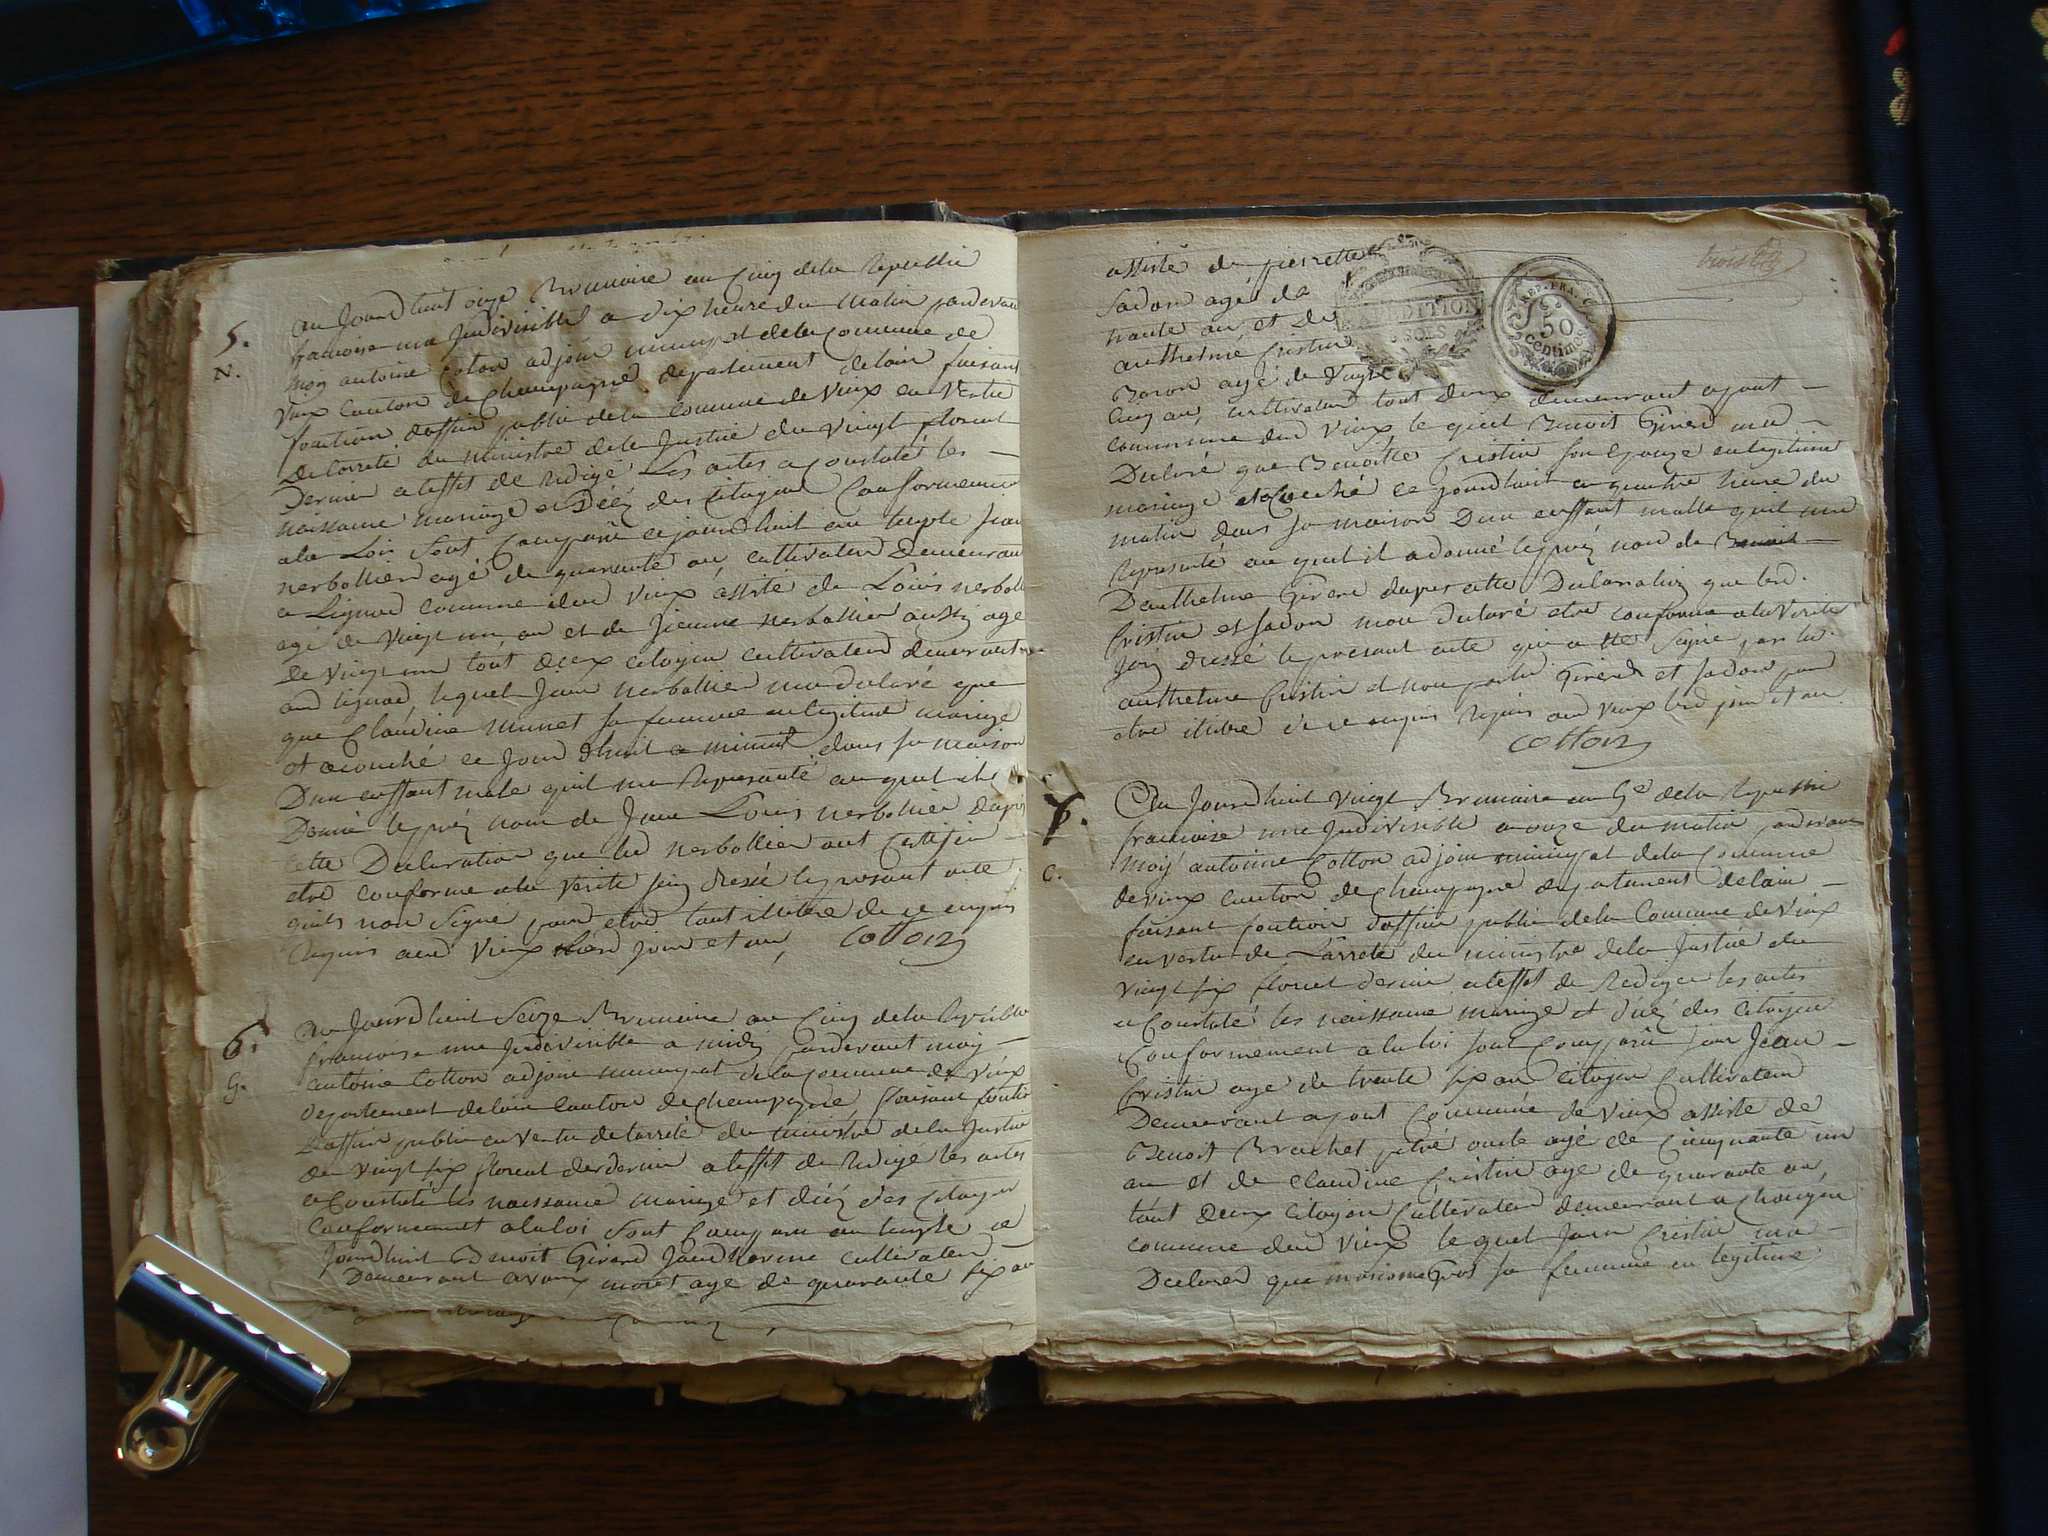 5.
N.
au Jourdhuit onze Brumaire an Cinq de la Republi
francoise une Indivisible a Dix heure du Matin pardevant
moy antoine Coton adjoin municipal de la Commune de
Vieux Canton de Champagne departement delain faisant
fontion d'officier public de la Commune de Vieux en Vertu
de larreté du ministre de la Justice du Vingt floreal
Dernier a leffet de Redigé Les actes a Constaté les
naissance mariage et Décéz des Citoyens Conformement
ala Loi sont Comparu ce jourdhuit au temple Jean
nerbollier agé de quarante an cultivateur Demeurant
a Lignod commune du Vieux assité de Louis nerbolli
agé de Vingt un an et de Jienne nerbollier aussy agé
de Vingt un tout deux citoyen cultivateur demeurant
aud lignod, lequel Jean nerbollier ma declaré que
que Claudine munet sa femme en legitime mariage
et acouché ce Jour dhuit a minuit dans sa maison
Dun enffant male quil ma Representé au quel il a
Donné le prénom de Jean Louis nerbollier dapres
cette Declaration que led nerbollier ont Certifier
etre conforme ala Verité jai dressé le present acte
quils non Signé pour etre tout illitere de ce enquis
Requis aud Vieux led jour et an, Cotton
6.
G.
au Jourdhuit Seize Brumaire an Cinq de la Republi
francoise une Indivisible a midy pardevant moy
antoine Cotton adjoin municipal de la Commune de Vieux
Departement de lain Canton de Champagne faisant fontion
Dofficier public en Vertu de larreté du ministre de la Justice
du Vingt six floreal dernier a leffet de Redigé les actes
a Constaté les naissance mariage et décéz des Citoyen
Conformement ala loi sont Comparu au temple ce
Jourdhuit Benoit Girerd cultivateur
Demeurant agé de quarante six an
assisté de pierrette
Sadon agé de
trante an et de
anthelme Cristin
Baron agé de Vingt
Cinq an, cultivateur tout Deux demeurant a pont
commune du Vieux le quel Benoit Girerd ma
Declaré que Benoitte Cristin son Epouze en legitime
mariage et acouché ce jourdhuit a quatre heure du
matin dans sa maison Dun enffant malle quil ma
Representé au quel il a donné le prénom de Benoit
Danthelme Girerd dapres cette Declaration que led.
Cristin et Sadon mon declaré etre conforme ala Verité
Jaiy dressé le present acte qui a été signé par led.
anthelme Cristin et non par led Girerd et Sadon pour
etre ilitere de ce enquis Requis aud Vieux led jour et an
Cotton
EXPEDITION
5 SOLS
REP. FRA.
50
Centimes
7.
C.
Au Jourdhuit Vingt Brumaire an 5e de la Republi
francoise une Indivisible a onze du matin pardevant
Moiy antoine Cotton adjoin municipal de la Commune
de Vieux Canton de Champagne departement delain
faisant fontion dofficier public de la Commune de Vieux
en vertu de Larreté du ministre de la Justice du
Vingt six floreal dernier a leffet de Rediger les actes
a Constaté les naissance mariage et décéz des Citoyen
Conformement ala loi sont Comparu Jean
Cristin agé de trente six an Citoyen Cultivateur
Demeurant a pont Commune de Vieux assisté de
Benoit Brachet oncle agé de Cinquante un
an et de Claudine Cristin agé de quarante an,
tout deux Citoyen Cultivateur demeurant a
commune du Vieux le quel Jean Cristin ma
Declaré que marianne Gros sa femme en legitime